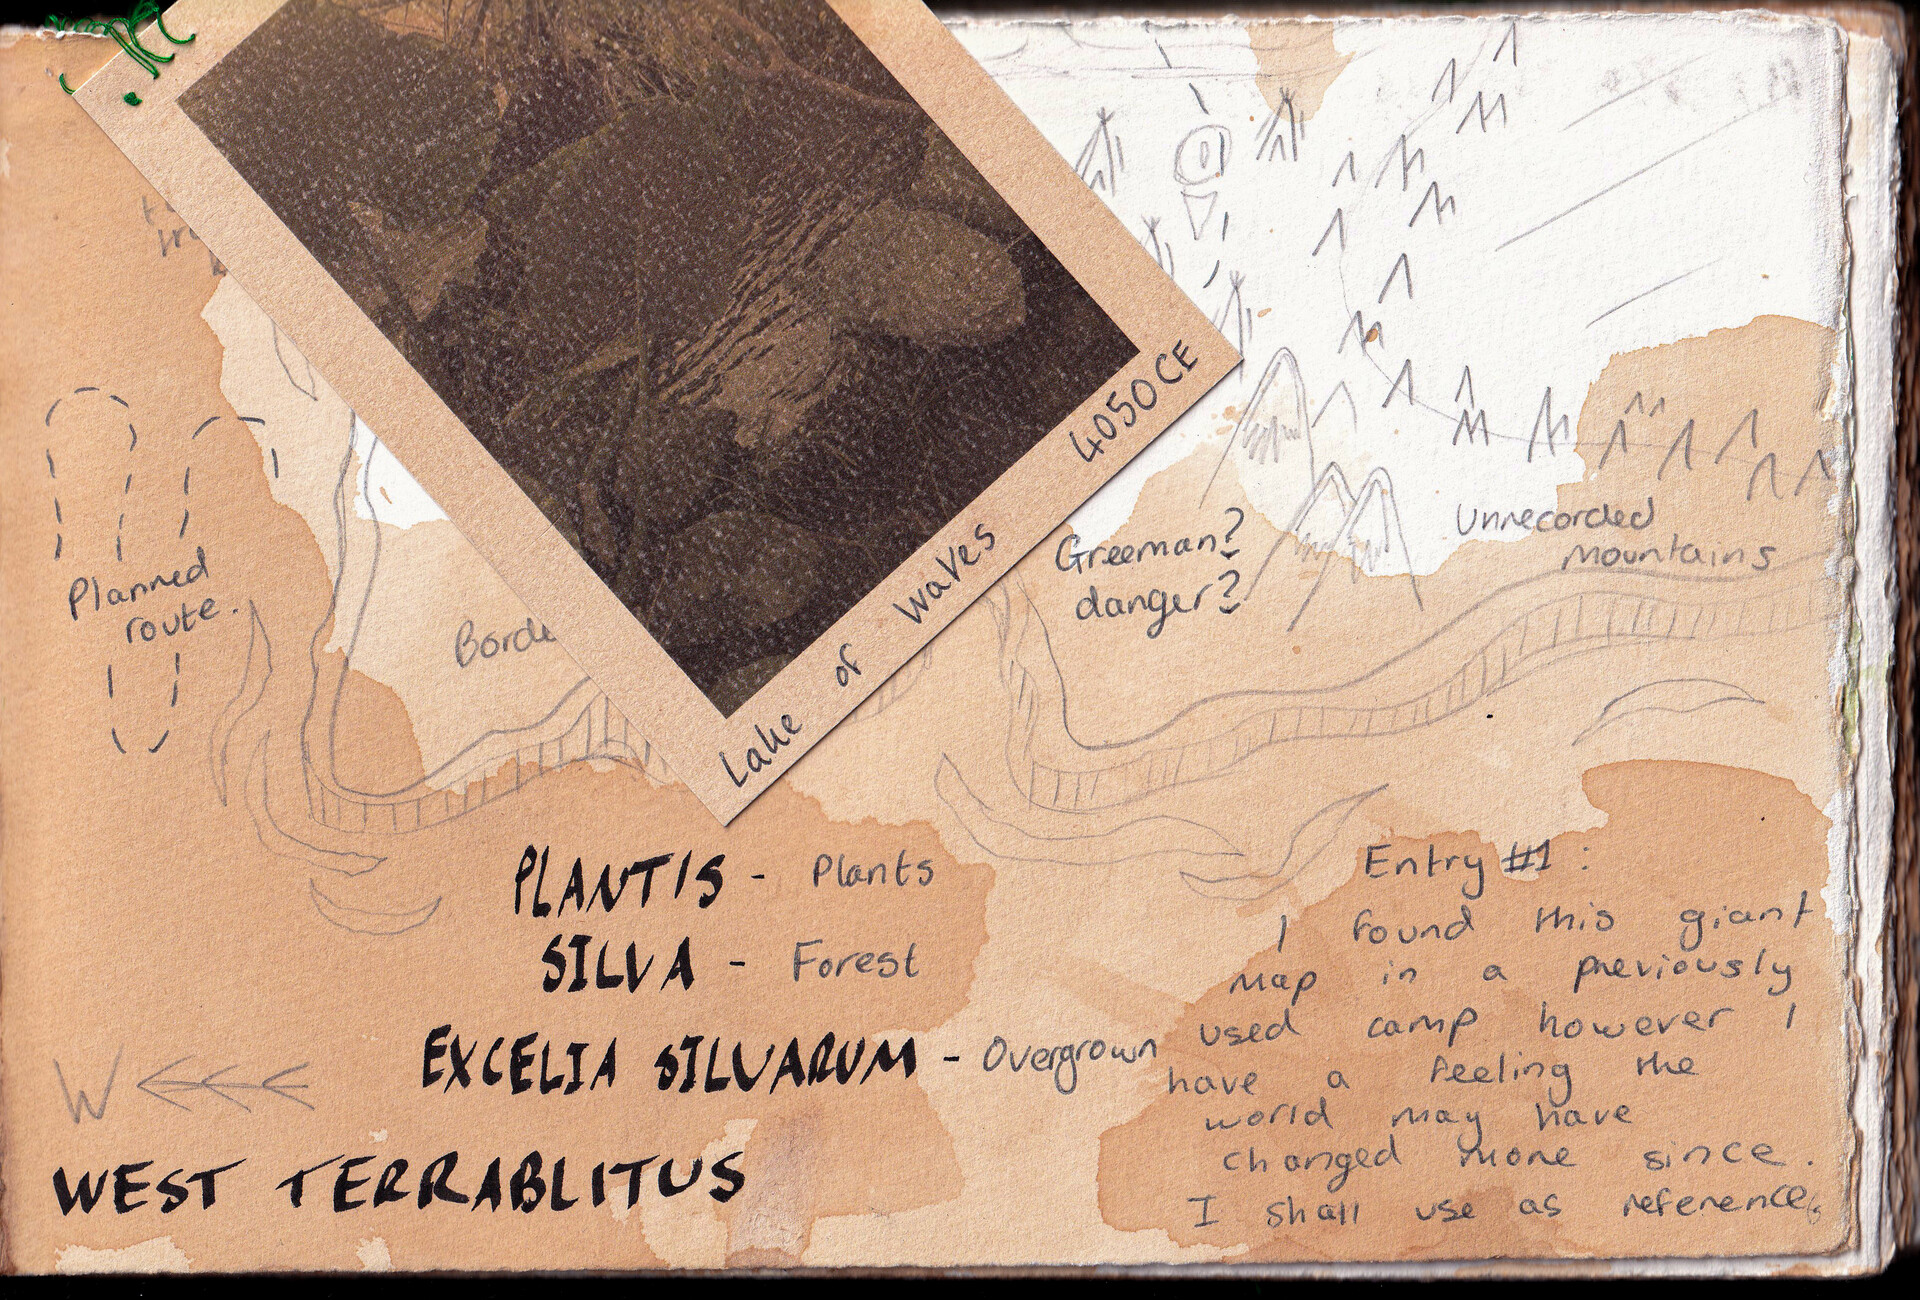 Planned
route.
Borde
Lake of Waves 4050CE
Greeman?
danger?
Unrecorded
Mountains
PLANTIS - Plants
SILVA - Forest
EXCELIA SILVARUM - Overgrown
W
WEST TERRABLITUS
Entry #1 :
I found this giant
Map in a previously
used camp however I
have a feeling the
world may have
changed more since.
I shall use as reference.